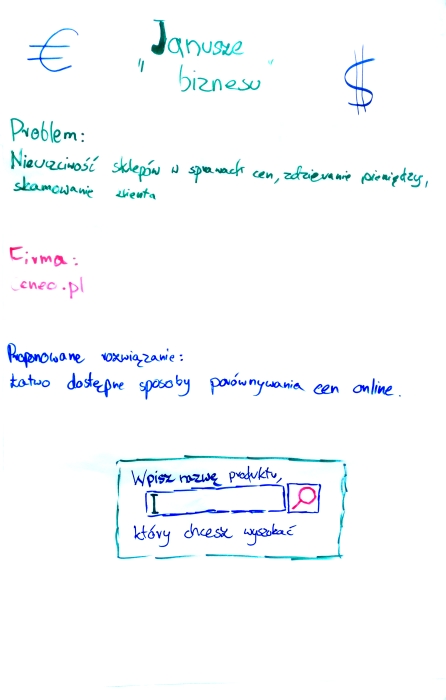 €
Janusze
" biznesu "
$
Problem:
Nieuczciwość sklepów w sprawach cen, zdzieranie pieniędzy,
skamowanie klienta
Firma:
ceneo.pl
Proponowane rozwiązanie:
Łatwo dostępne sposoby porównywania cen online.
Wpisz nazwę produktu,
który chcesz wyszukać